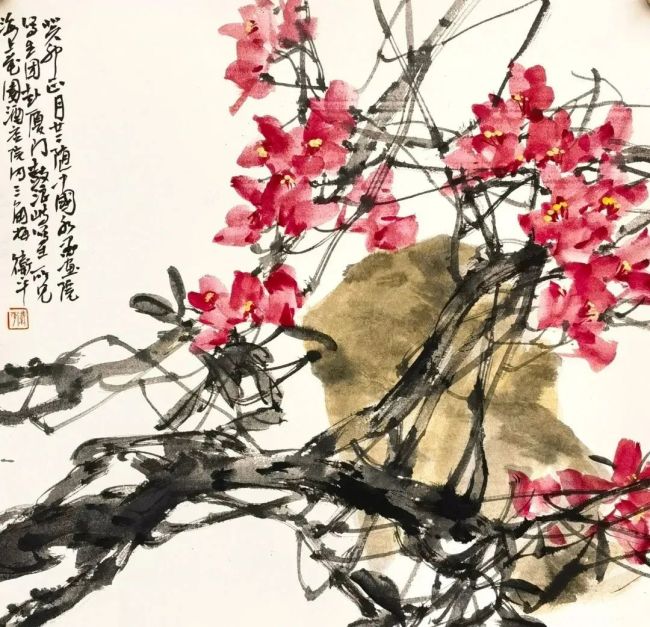 癸卯正月廿二随中国水墨画院
写生团赴厦门鼓浪屿写生所见
海上花园酒店院内三角梅 卫平